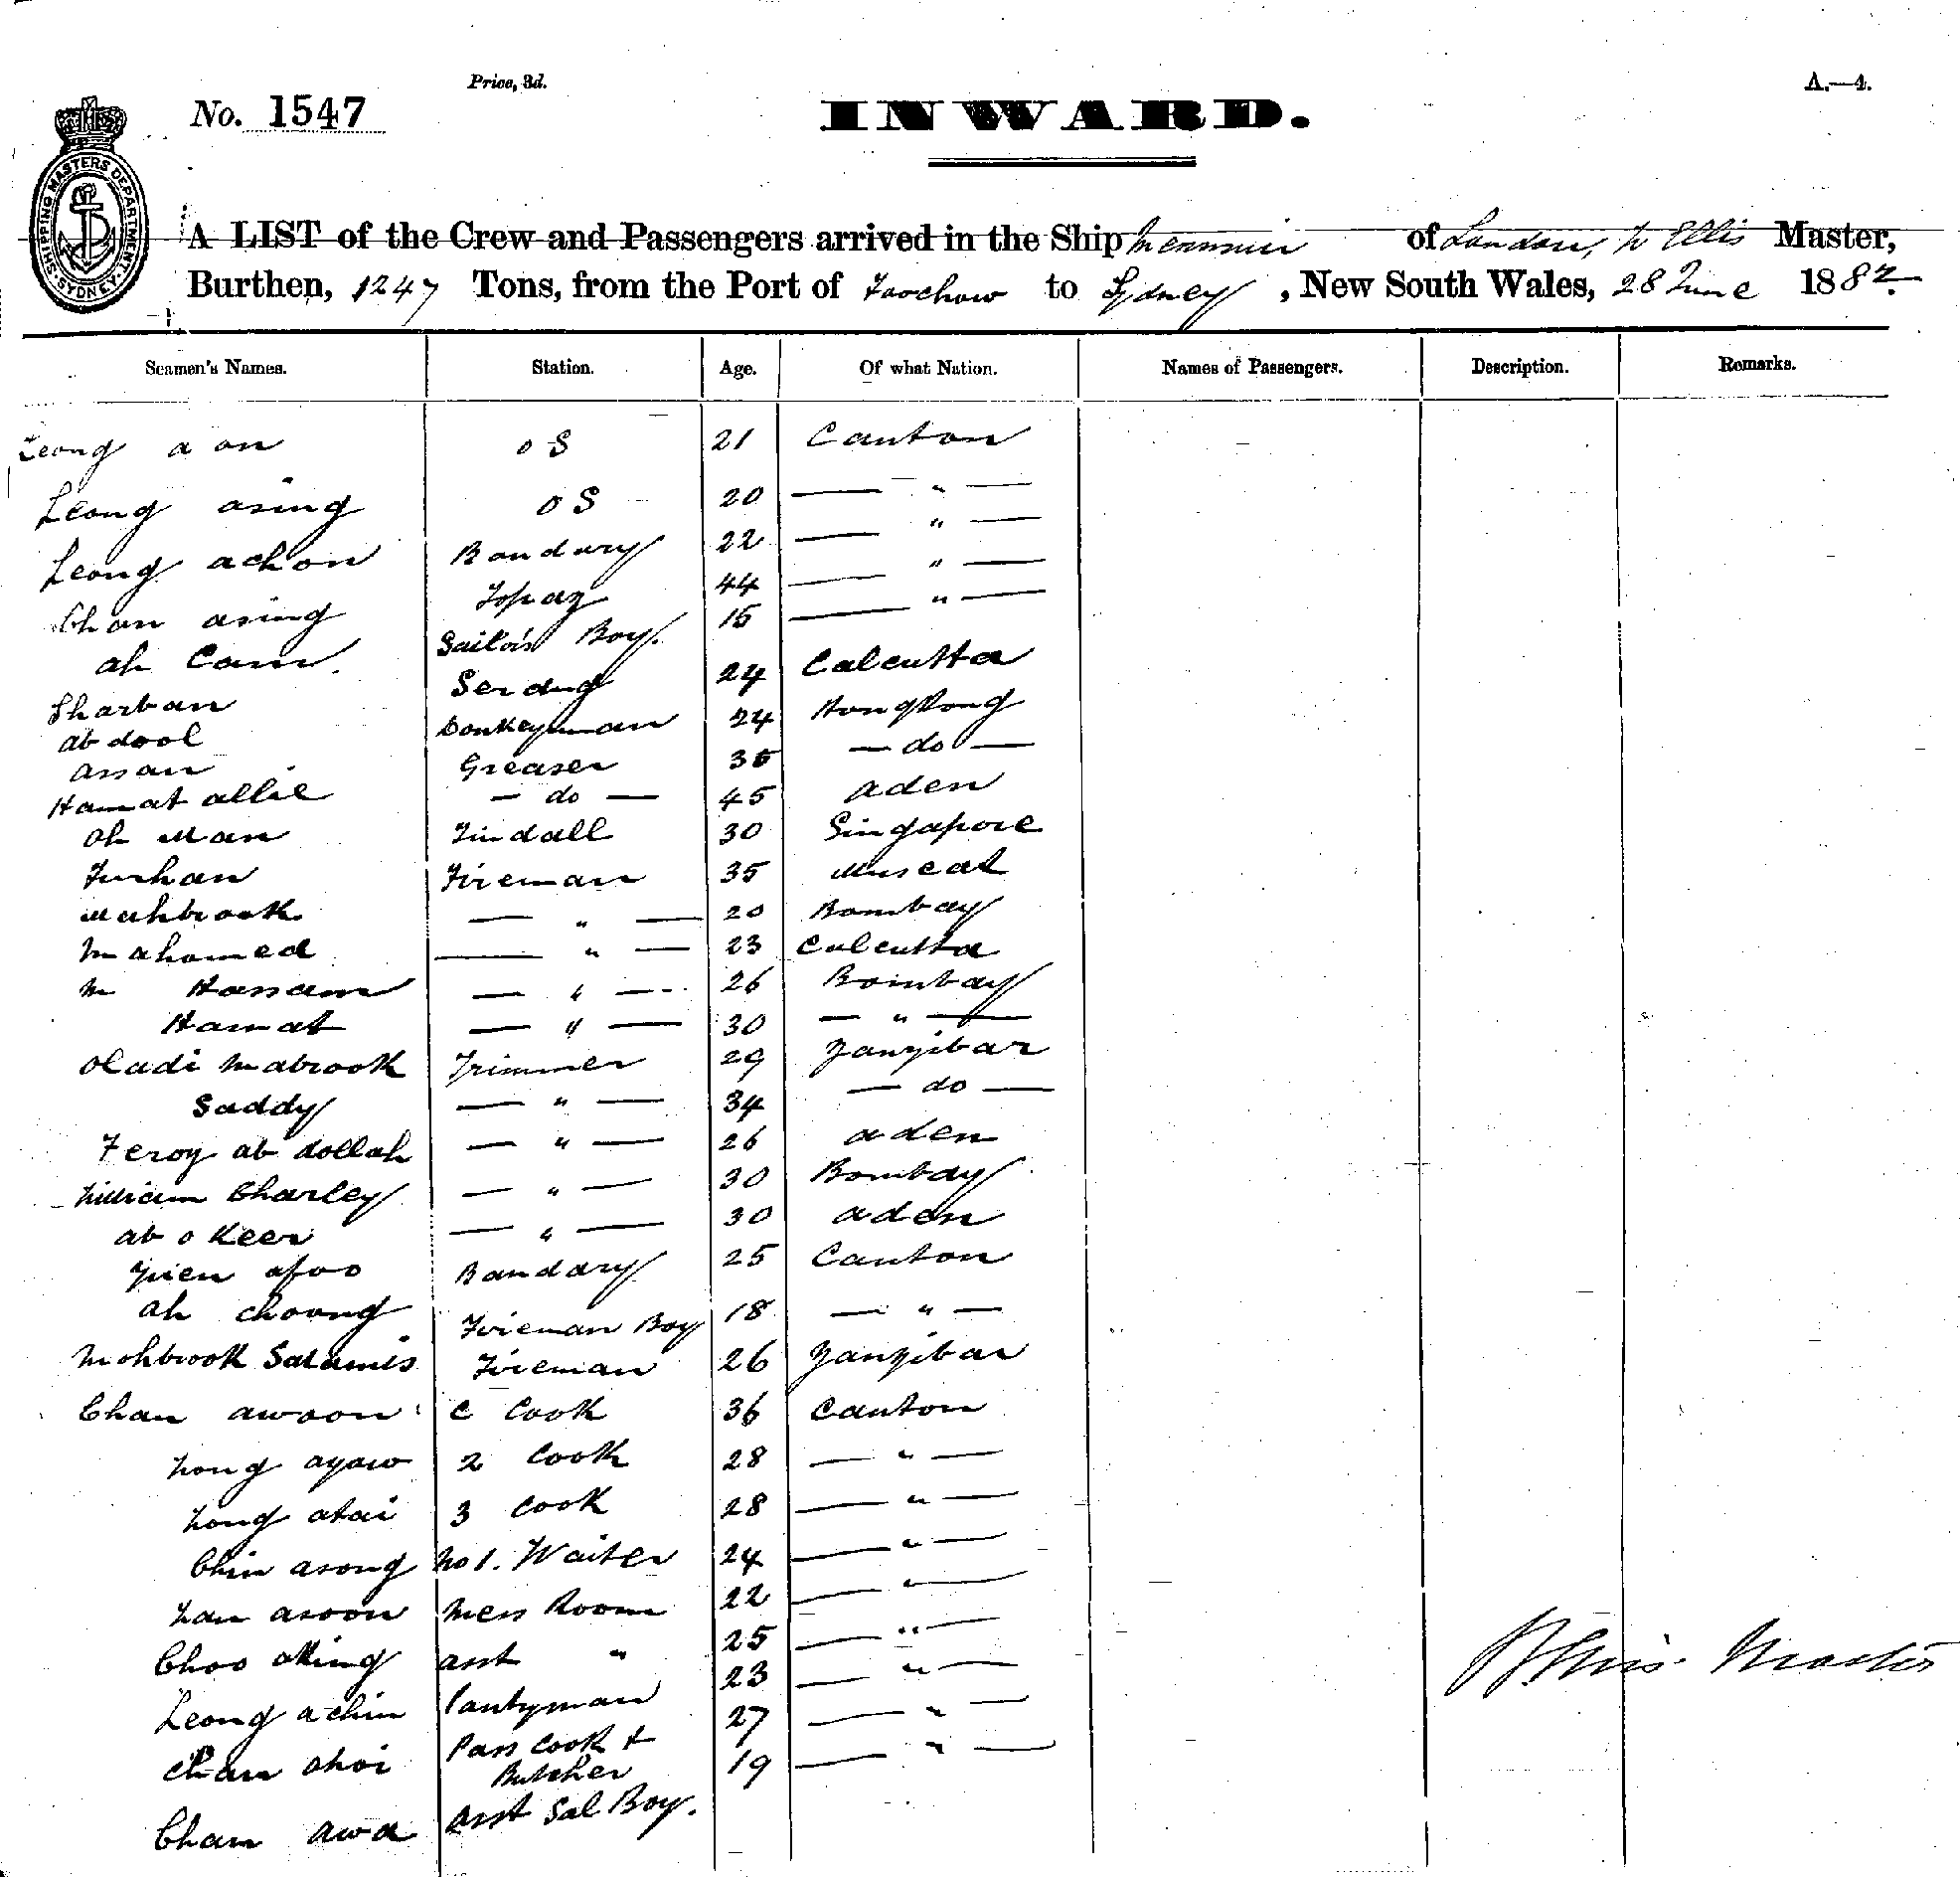 Price, 3d.
A.—4.
No. 1547
INWARD.
SHIPPING MASTERS DEPARTMENT SYDNEY
A LIST of the Crew and Passengers arrived in the Ship of London, Ellis Master,
Burthen, 1247 Tons, from the Port of Foochow to Sydney, New South Wales, 28 June 1882
Seamen's Names. Station. Age. Of what Nation. Names of Passengers. Description. Remarks.
Leong a on O S 21 Canton
Leong asing O S 20 — " —
Leong achon Bandary 22 — " —
Chan asing Topaz 44 — " —
ah Cam Sailors Boy. 15 — " —
Sharban Serang 24 Calcutta
abdool Donkeyman 24 Hong Kong
assan Greaser 35 — do —
Hamat allie — do — 45 aden
ah Man Tindall 30 Singapore
Furhan Fireman 35 Muscat
Mahbrook — " — 20 Bombay
Mahomed — " — 23 Calcutta
M Hassam — " — 26 Bombay
Hamat — " — 30 — " —
Oladi Mabrook Trimmer 29 Zanzibar
Saddy — " — 34 — do —
Feroy ab dollah — " — 26 aden
William Charley — " — 30 Bombay
ab o Keer — " — 30 aden
Yien afoo Bandary 25 Canton
ah choong Fireman Boy 18 — " —
Mohbrook Salamis Fireman 26 Zanzibar
Chan awoon C Cook 36 Canton
hong ayaw 2 Cook 28 — " —
hong atai 3 Cook 28 — " —
Chin asong No 1. Waiter 24 — " —
asoon Mess Room 22 — " —
Choo aking asst " 25 — " —
Leong achin Pantryman 23 — " —
Chan ahoi Pass Cook & Butcher 27 — " —
Chan awa asst Sal Boy. 19 — " —
W Ellis Master